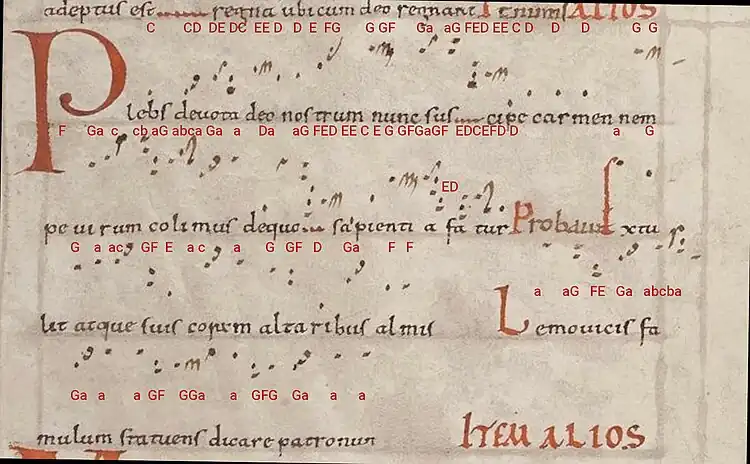 adeptus est regna ubicum deo regnant ALIOS
C CD DE DC EE D D E FG G GF Ga aG FED EE C D D D G G
Plebs deuota deo nostrum nunc suscipe carmen nem
F Ga c cb aG abca Ga a Da aG FED EE C E G GFGaGF EDCEFD D a G
ED
pe uirum colimus dequo sapienti a fatur Probauit Extu
G a ac GF E a c a G GF D Ga F F
a aG FE Ga abcba
lit atque suis almis Lemouicis fa
Ga a a GF GGa a GFG Ga a a
mulum statuens dicare patronum ITEM ALIOS